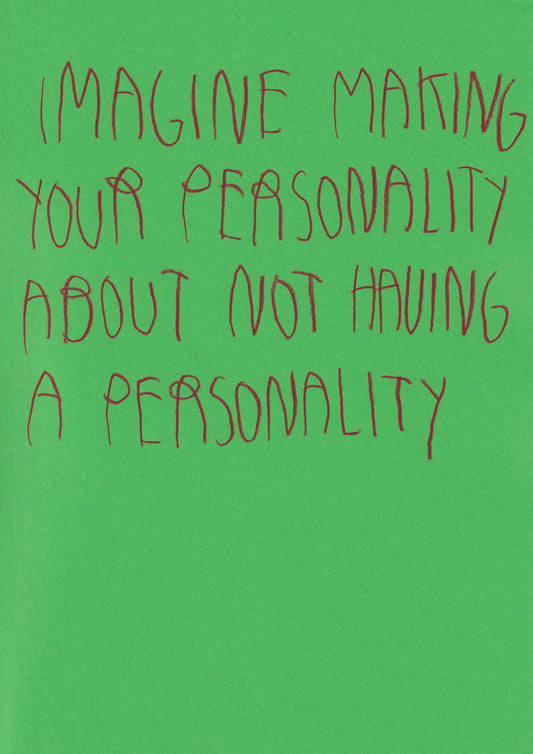 IMAGINE MAKING
YOUR PERSONALITY
ABOUT NOT HAVING
A PERSONALITY